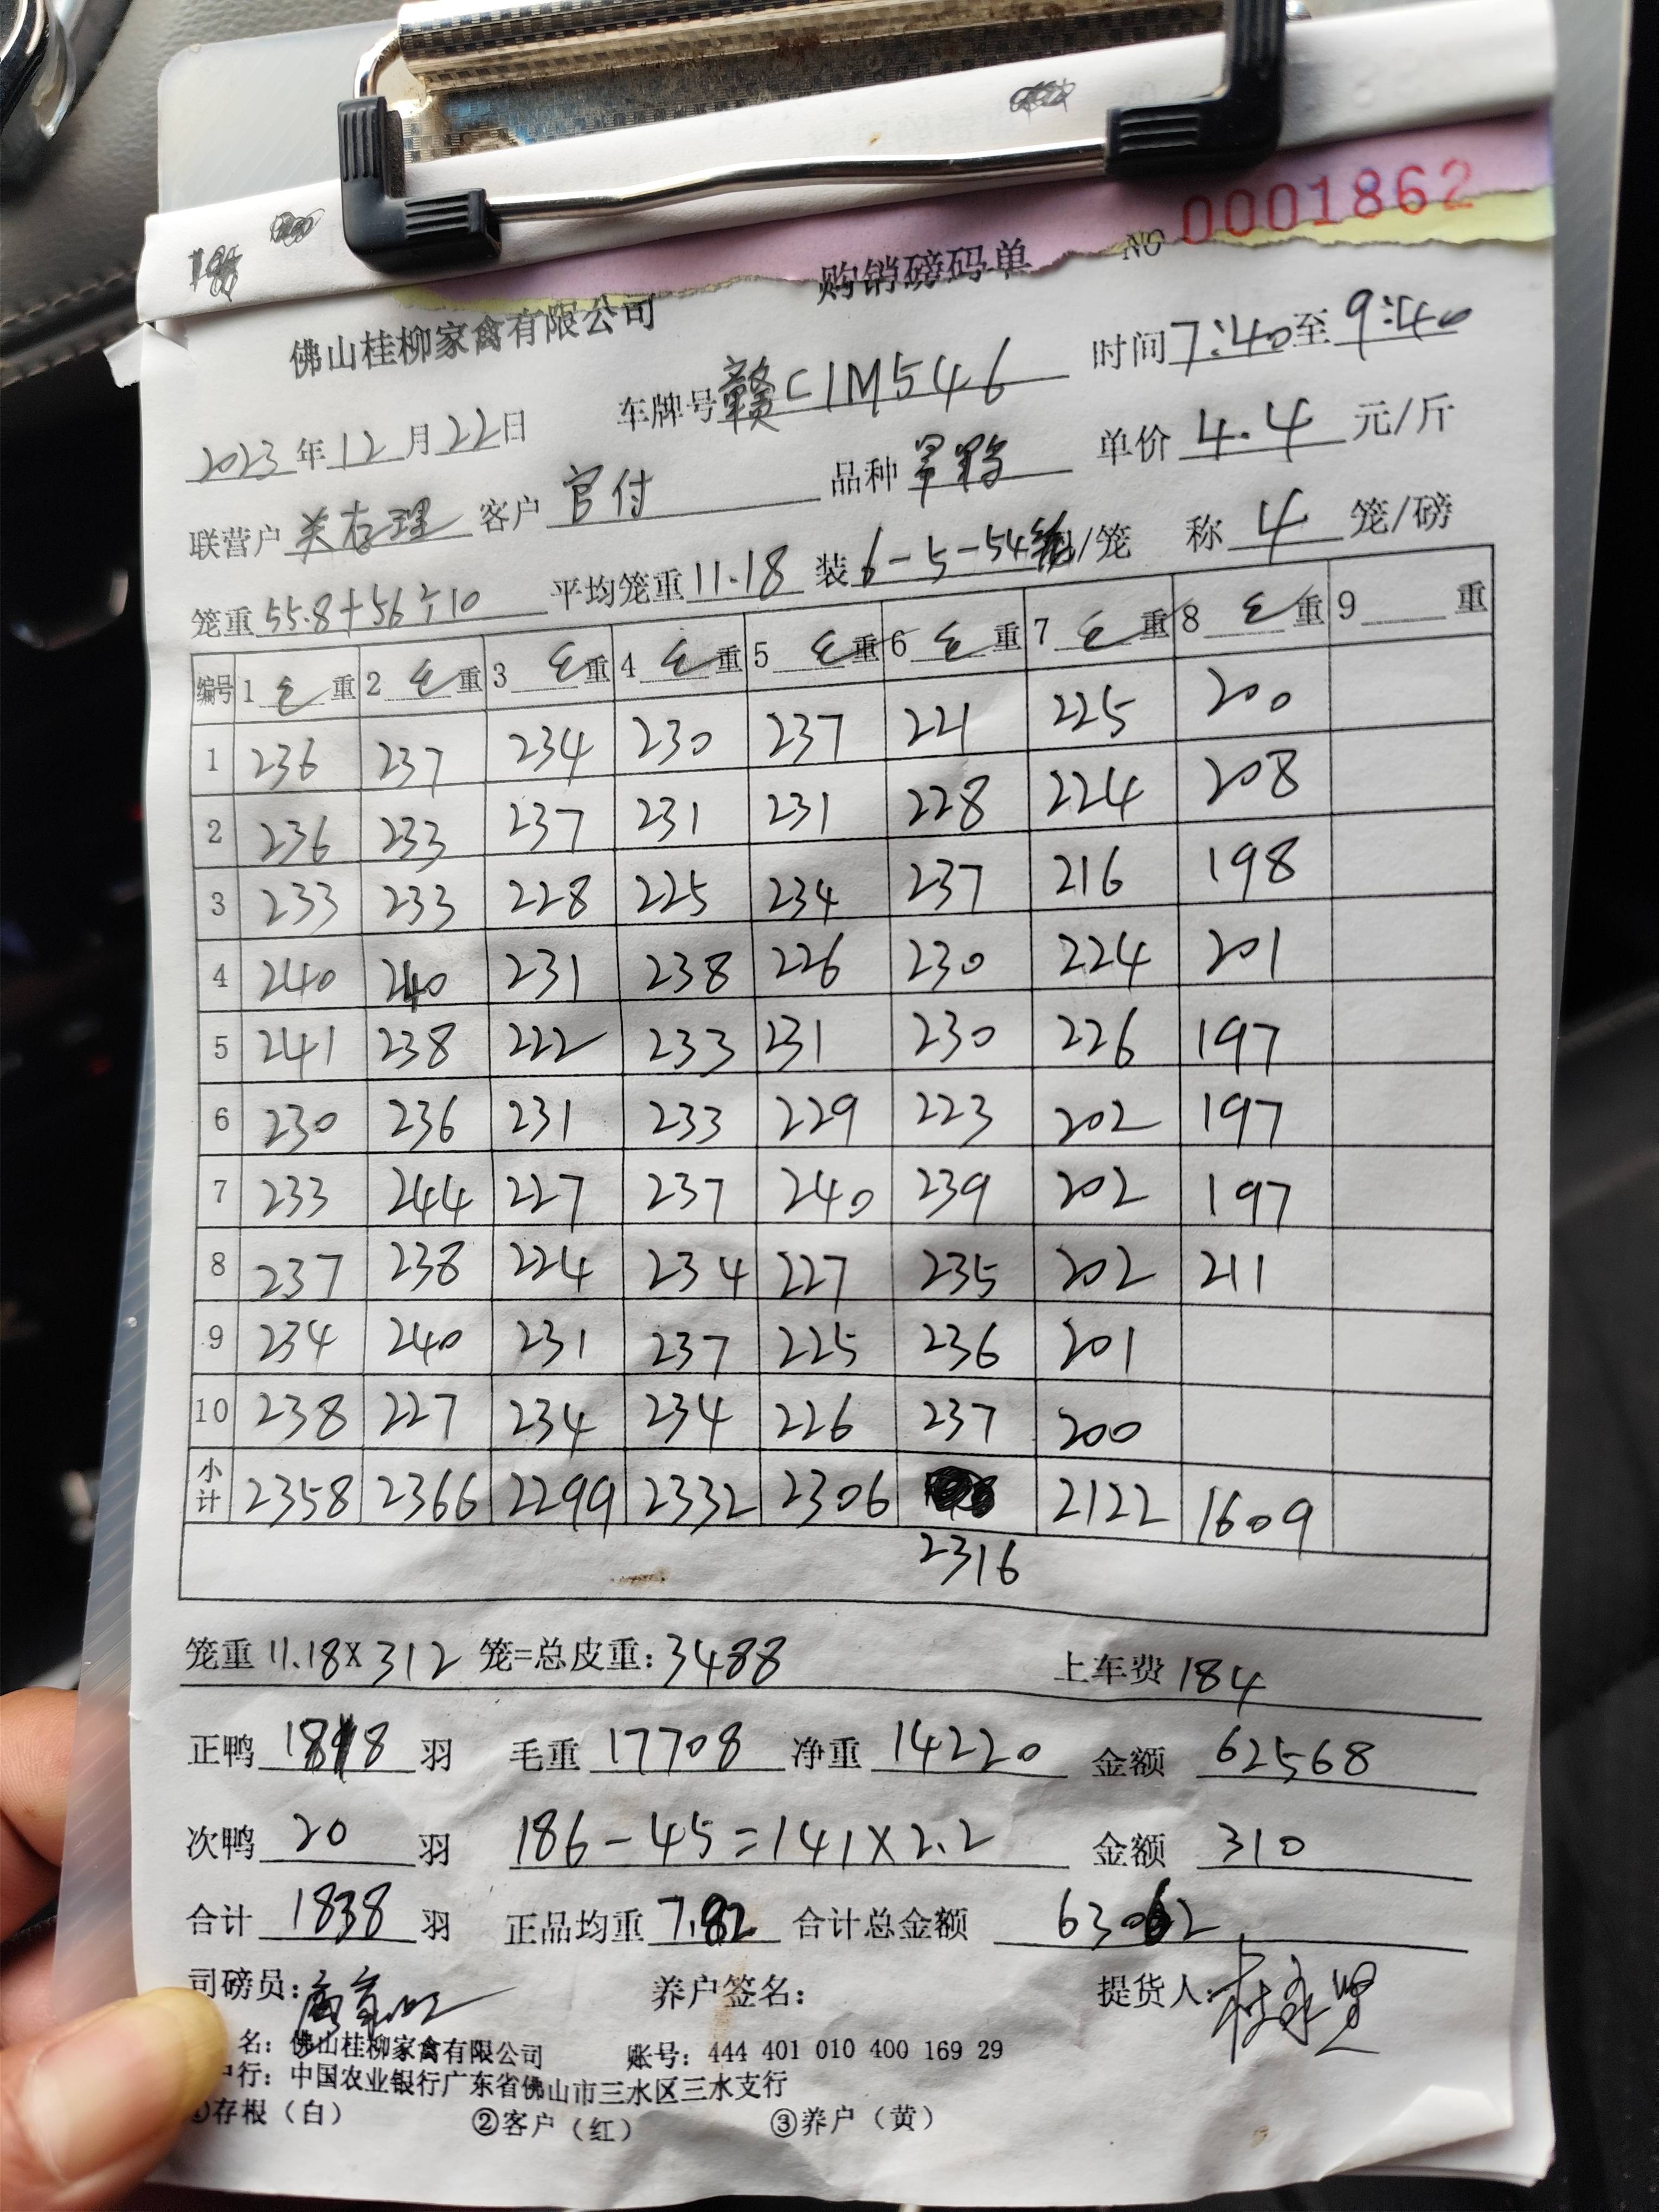 NO 0001862
佛山桂柳家禽有限公司 购销磅码单
2023年12月22日 车牌号 赣C1M546 时间 7:40至9:40
联营户 关存理 客户 官付 品种 单价 4.4 元/斤
笼重 55.8+56÷10 平均笼重 11.18 装 6-5-54 /笼 称 4 笼/磅
编号 1 毛重 2 毛重 3 毛重 4 毛重 5 毛重 6 毛重 7 毛重 8 毛重 9 重
1 236 237 234 230 237 221 225 200
2 236 233 237 231 231 228 224 208
3 233 233 228 225 234 237 216 198
4 240 240 231 238 226 230 224 201
5 241 238 222 233 231 230 226 197
6 230 236 231 233 229 223 202 197
7 233 244 227 237 240 239 202 197
8 237 238 224 234 227 235 202 211
9 234 240 231 237 225 236 201
10 238 227 234 234 226 237 200
小计 2358 2366 2299 2332 2306 2316 2122 1609
笼重 11.18×312 笼=总皮重:3488 上车费 184
正鸭 1818 羽 毛重 17708 净重 14220 金额 62568
次鸭 20 羽 186-45=141×2.2 金额 310
合计 1838 羽 正品均重 7.82 合计总金额 63062
司磅员: 养户签名: 提货人:
名:佛山桂柳家禽有限公司 账号:444 401 010 400 169 29
户行:中国农业银行广东省佛山市三水区三水支行
①存根(白) ②客户(红) ③养户(黄)